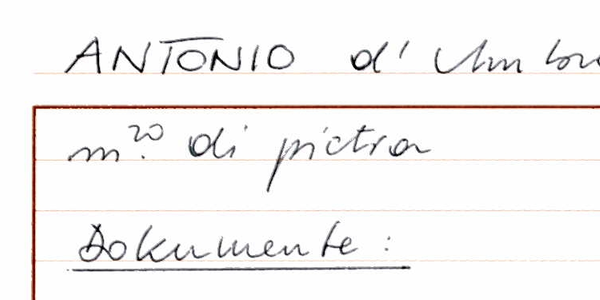 ANTONIO d'Um
m.ro di pietra
Dokumente: